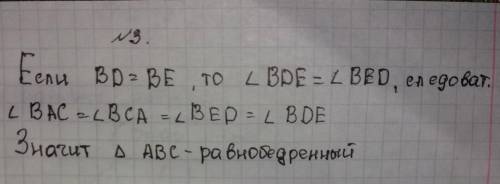 №3.
Если BD = BE, то ∠ BDE = ∠ BED, следоват.
∠ BAC = ∠ BCA = ∠ BED = ∠ BDE
Значит △ ABC - равнобедренный